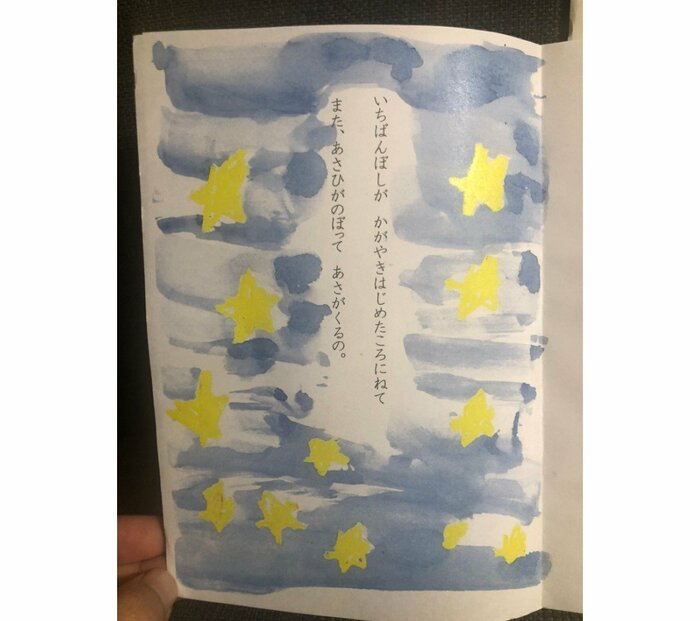 いちばんぼしが　かがやきはじめたころにねて
また、あさひがのぼって　あさがくるの。